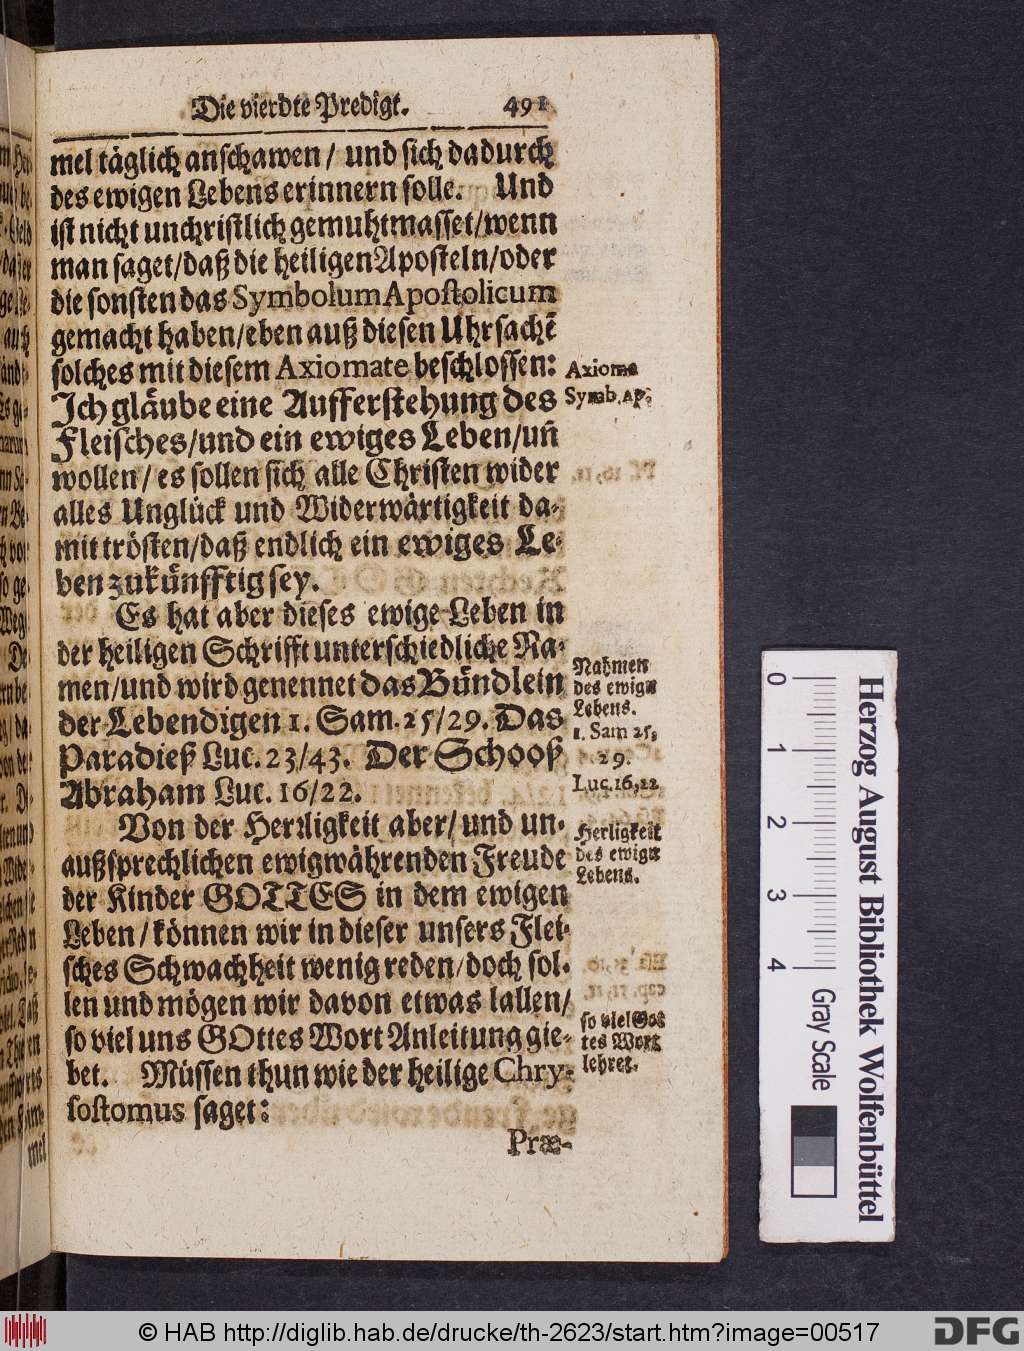 Die vierdte Predigt. 491
mel täglich anschawen / und sich dadurch
des ewigen Lebens erinnern solle. Und
ist nicht unchristlich gemuhtmasset/wenn
man saget/daß die heiligen Aposteln/oder
die sonsten das Symbolum Apostolicum
gemacht haben/eben auß diesen Uhrsachẽ
solches mit diesem Axiomate beschlossen:
Ich gläube eine Aufferstehung des
Fleisches/und ein ewiges Leben/uñ
wollen / es sollen sich alle Christen wider
alles Unglück und Widerwärtigkeit da-
mit trösten/daß endlich ein ewiges Le-
ben zukünfftig sey.
Axioma
Symb. ap.
Es hat aber dieses ewige Leben in
der heiligen Schrifft unterschiedliche Na-
men/und wird genennet das Bündlein
der Lebendigen 1. Sam. 25/29. Das
Paradieß Luc. 23/43. Der Schooß
Abraham Luc. 16/22.
Nahmen
des ewigẽ
Lebens.
1. Sam 25,
29.
Luc. 16, 22
Von der Herrligkeit aber/ und un-
außsprechlichen ewigwährenden Freude
der Kinder GOTTES in dem ewigen
Leben / können wir in dieser unsers Flei-
sches Schwachheit wenig reden/doch sol-
len und mögen wir davon etwas lallen/
so viel uns GOttes Wort Anleitung gie-
bet. Müssen thun wie der heilige Chry-
sostomus saget:
Herligkeit
des ewigẽ
Lebens.
so viel Got
tes Wort
lehret.
Præ-
0 1 2 3 4
Gray Scale
Herzog August Bibliothek Wolfenbüttel
© HAB http://diglib.hab.de/drucke/th-2623/start.htm?image=00517
DFG